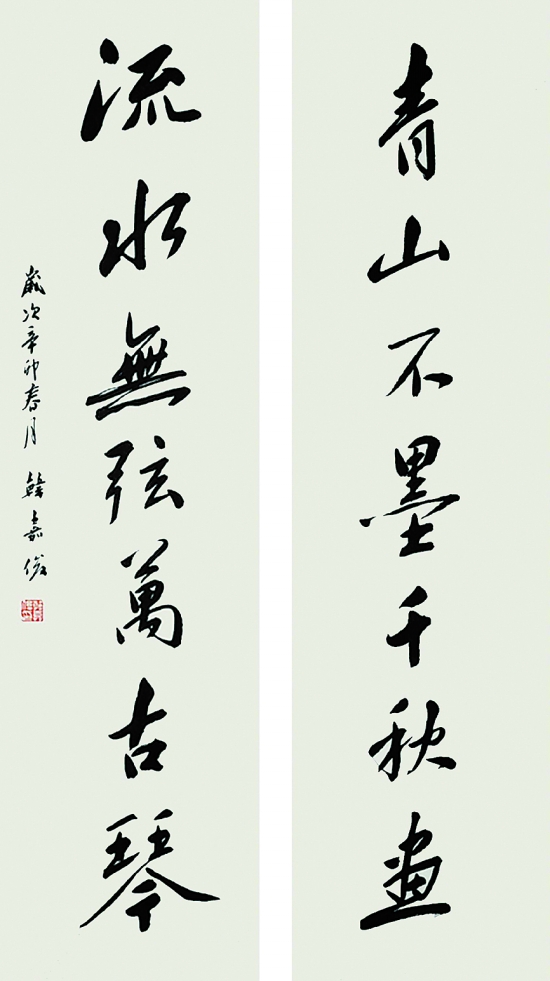 青山不墨千秋畫
流水無弦萬古琴
歲次辛卯春月 韓嘉俊